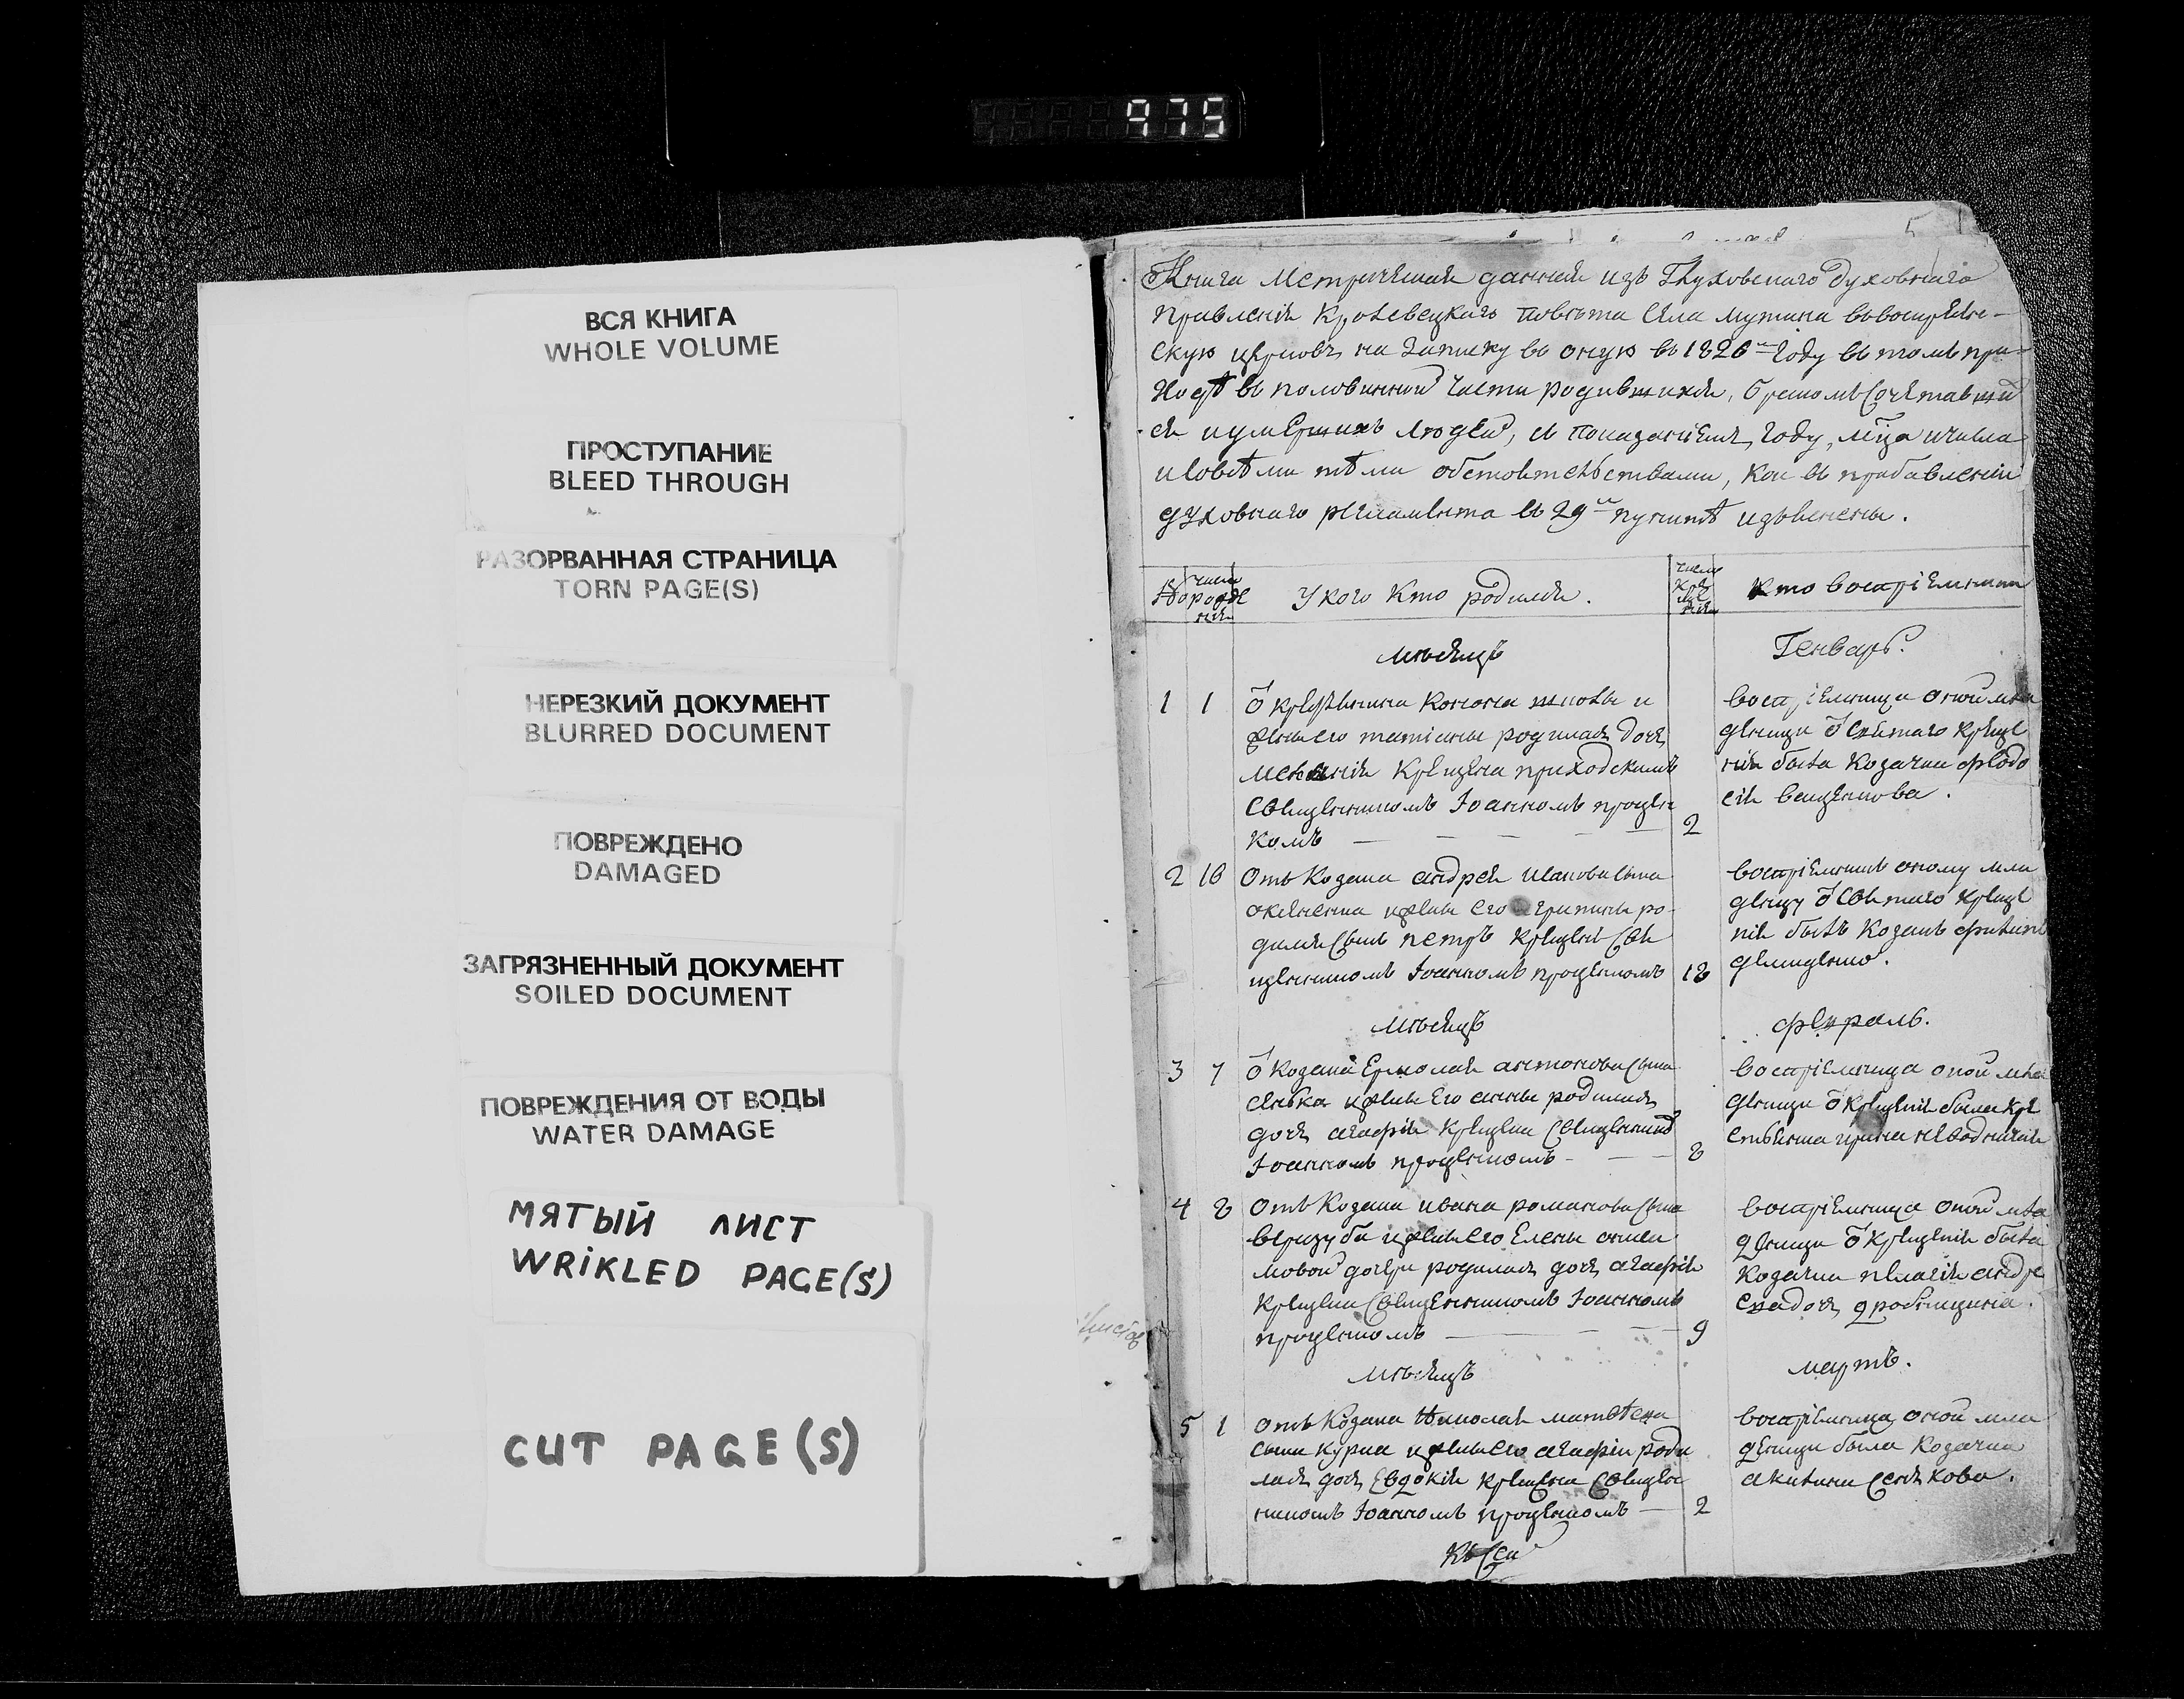 975
ВСЯ КНИГА
WHOLE VOLUME
ПРОСТУПАНИЕ
BLEED THROUGH
РАЗОРВАННАЯ СТРАНИЦА
TORN PAGE(S)
НЕРЕЗКИЙ ДОКУМЕНТ
BLURRED DOCUMENT
ПОВРЕЖДЕНО
DAMAGED
ЗАГРЯЗНЕННЫЙ ДОКУМЕНТ
SOILED DOCUMENT
ПОВРЕЖДЕНИЯ ОТ ВОДЫ
WATER DAMAGE
МЯТЫЙ ЛИСТ
WRiKLED PAGE(S)
CUT PAGE(S)
5
Книга метрическая данная изъ Глуховскаго Духовнаго
правленія Кролевецкаго повѣта села мутина въ воскресен-
скую церковь на записку въ оную въ 1826 году въ томъ при-
ходѣ въ половинной части родившихся, бракомъ сочетавший
ся и умершихъ людей, съ показаніемъ году, мца и числа
и со всѣми тѣми обстоятельствами, кои въ прибавленіи
духовнаго регламента въ 29 пунктѣ изъяснены.
№ число рождения
У кого кто родился.
число крещения
Кто воспріемники
мѣсяцъ Генварь.
1 1 Ѿ крестьянина Конона и
жены его татіаны родилась дочь
меланія крещена приходскимъ
священникомъ Іоанномъ процен
комъ 2
воспріемница оной мла
денци ѿ святаго креще
нія была Козачка феодо
сія
2 16 Отъ Козака андрея Исакова сына
и жены его агрипины ро-
дился сынъ петръ крещенъ свя
щенникомъ Іоанномъ проценкомъ 18
воспріемникъ оному мла
денцу ѿ святаго креще
нія былъ Козакъ филипъ
демиденко.
мѣсяцъ февраль.
3 7 Ѿ Козака Ермолая антонова сына
сенька и жены его анны родилась
дочь агафія крещена священником
Іоанномъ проценкомъ 8
воспріемница оной мла
денци ѿ крещенія была кре
стьянка ирина
4 8 Отъ Козака ивана романова сына
веризуба и жены его Елены
мовой дочери родилась дочь агафія
крещена священникомъ Іоанномъ
проценкомъ 9
воспріемница оной мла
денци ѿ крещенія была
козачка пелагія андре
ева дочь
мѣсяцъ мартъ.
5 1 Отъ Козака Николая матвѣева
сына курка и жены его агафіи роди
лася дочь Евдокія крещена священ
никомъ Іоанномъ проценкомъ 2
воспріемница оной мла
денци была Козачка
акилина сенкова.